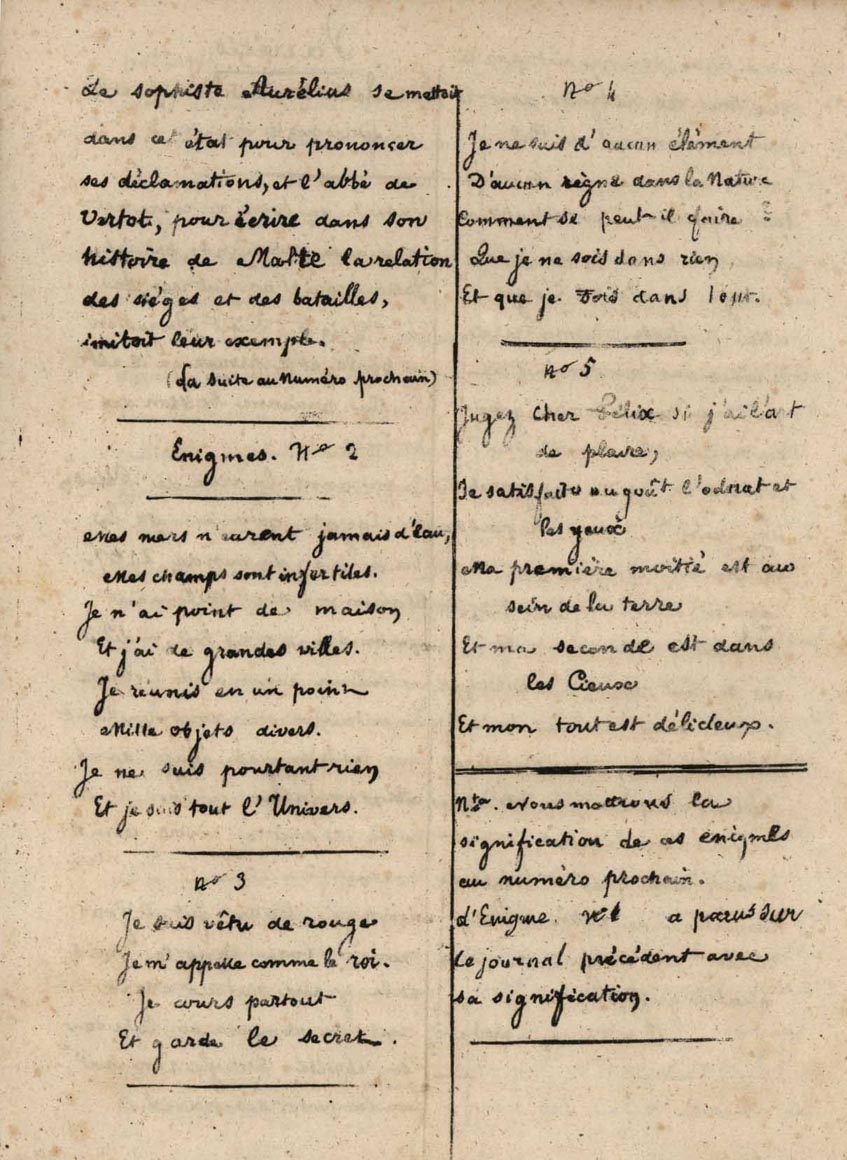 Le sophiste Aurélius se mettoit
dans cet état pour prononcer
ses déclamations, et l'abbé de
Vertot, pour écrire dans son
histoire de Malte la relation
des sièges et des batailles,
imitoit leur exemple.
(La suite au Numéro prochain)
Enigmes. No 2
Mes mers n'eurent jamais d'eau,
Mes champs sont infertiles.
Je n'ai point de maison
Et j'ai de grandes villes.
Je réunis en un point
Mille objets divers.
Je ne suis pourtant rien
Et je suis tout l'Univers.
No 3
Je suis vêtu de rouge
Je m'appelle comme le roi.
Je cours partout
Et garde le secret.
No 4
Je ne suis d'aucun élément
D'aucun règne dans la Nature
Comment se peut-il faire
Que je ne sois dans rien
Et que je sois dans tout.
No 5
Jugez cher Félix si j'ai l'art
de plaire,
Je satisfaits au goût l'odorat et
les yeux
Ma première moitié est au
sein de la terre
Et ma seconde est dans
les Cieux
Et mon tout est délicieux.
Nta. Nous mettrons la
signification de ces enigmes
au numéro prochain.
d'Enigme No 1 a parus sur
Le journal précédent avec
sa signification.